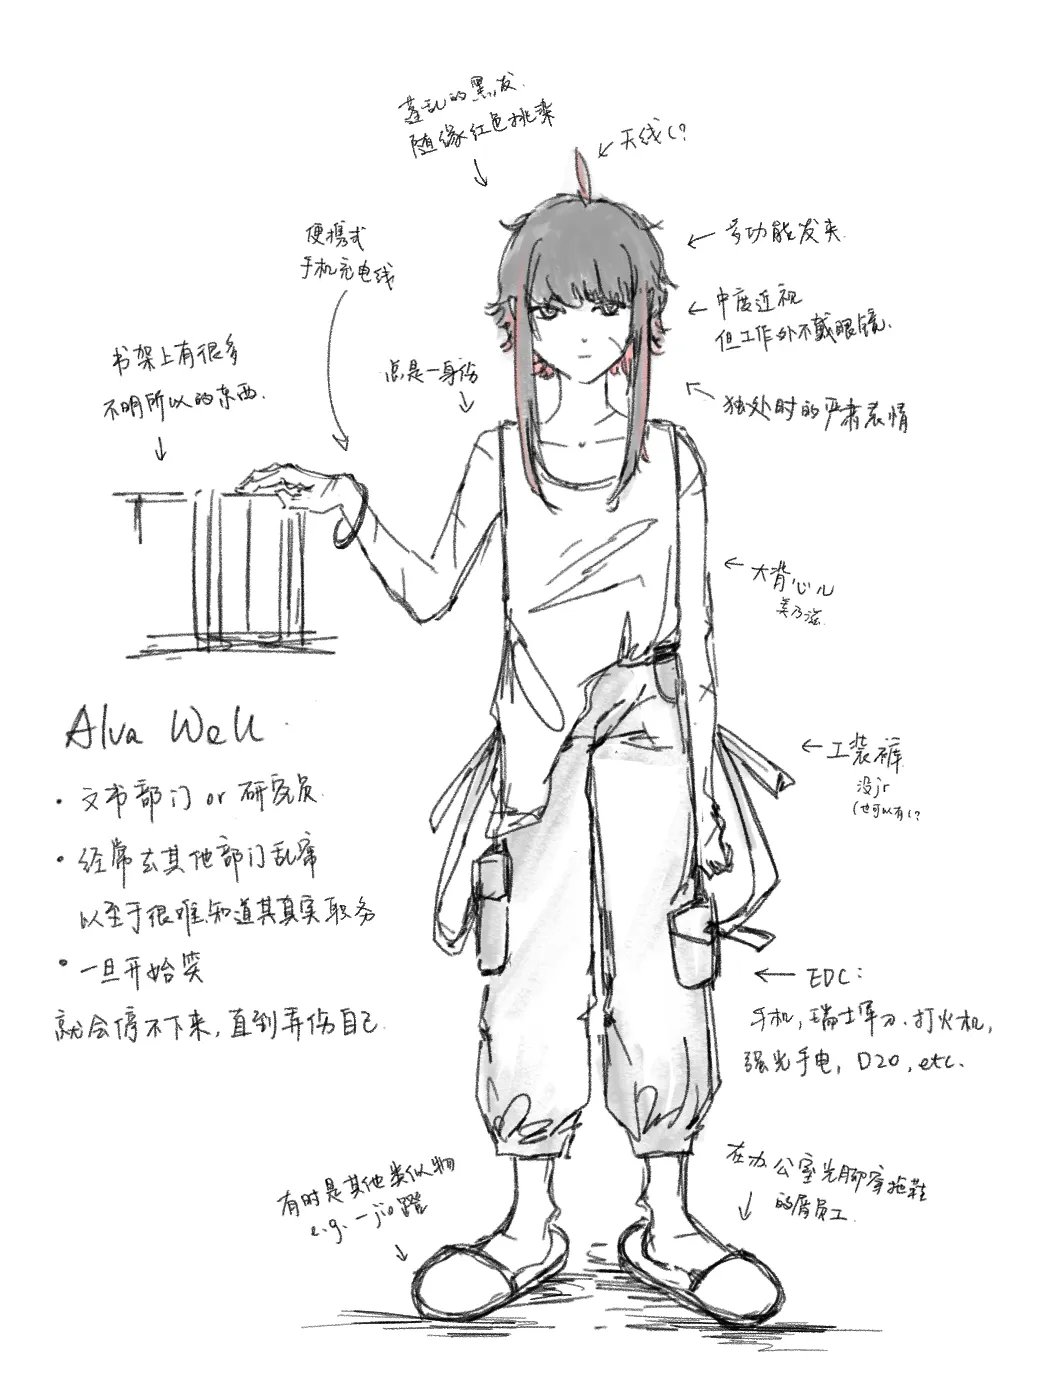 蓬乱的黑发.
随缘红色挑染
天线(?
多功能发夹.
便携式
手机充电线
中度近视
但工作外不戴眼镜.
书架上有很多
不明所以的东西.
总是一身伤
独处时的严肃表情
大背心儿
美乃滋.
Alva Well.
· 文书部门 or 研究员.
· 经常去其他部门乱窜
以至于很难知道其真实职务
· 一旦开始笑
就会停不下来,直到弄伤自己.
工装裤
没jr
(也可以有(?
EDC:
手机,瑞士军刀.打火机,
强光手电, D20, etc.
有时是其他类似物
e.g. 一jio蹬
在办公室光脚穿拖鞋
的屑员工.